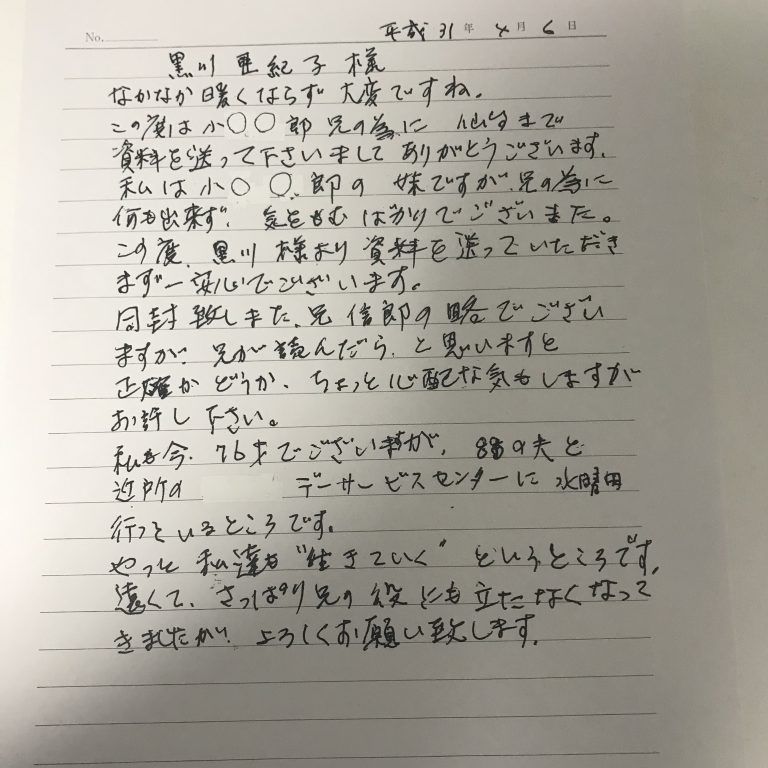 No. 平成31年4月6日
黒川亜紀子様
なかなか暖くならず大変ですね。
この度は小〇〇郎兄の為に仙台まで
資料を送って下さいましてありがとうございます。
私は小〇〇郎の妹ですが、兄の為に
何も出来ず、気をもむばかりでございました。
この度、黒川様より資料を送っていただき
まず一安心でございます。
同封致しました、兄信郎の略でござい
ますが、兄が読んだら、と思いますと
正確かどうか、ちょっと心配な気もしますが
お許し下さい。
私も今、76才でございますが、88の夫と
近所の デーサービスセンターに水曜日
行っているところです。
やっと私達も“生きていく”というところです。
遠くて、さっぱり兄の役にも立たなくなって
きましたが、よろしくお願い致します。